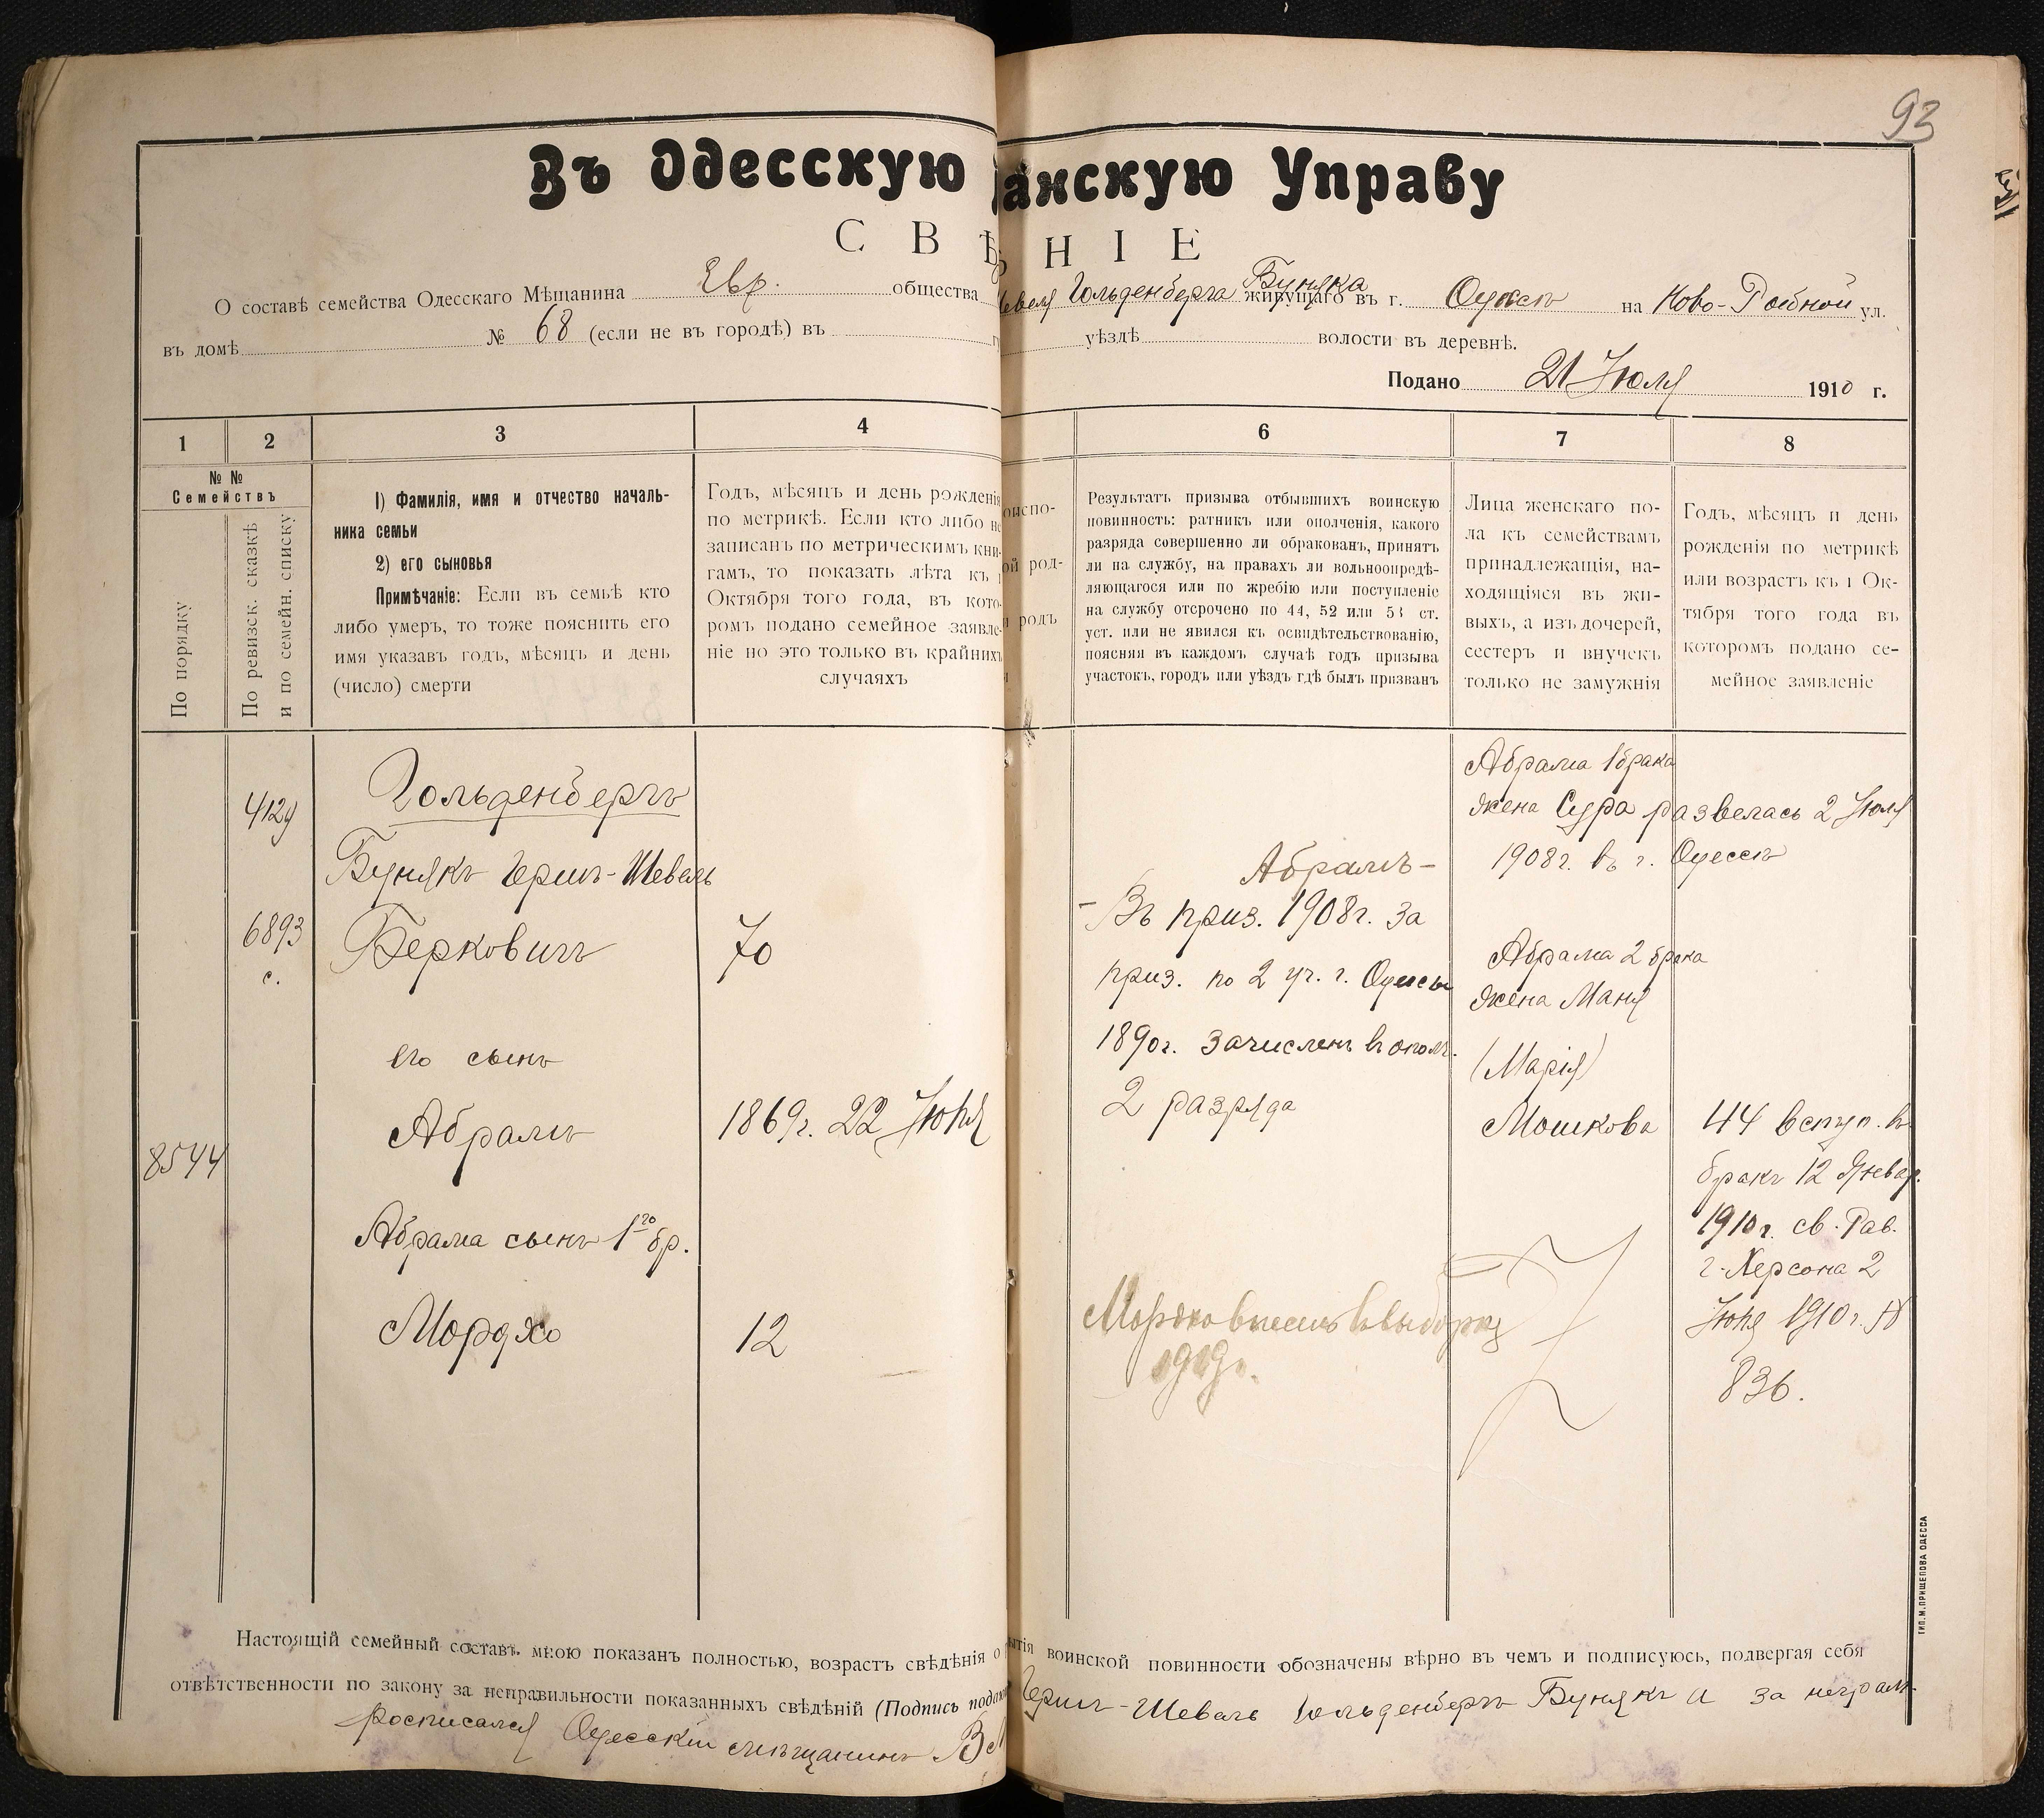 93
Въ Одесскую анскую Управу
С В Ѣ Н I Е
О составѣ семейства Одесскаго Мѣщанина Евр. общества Гольденберга Буняка живущаго въ г. Одессѣ на Ново-Рыбной ул.
въ домѣ № 68 (если не въ городѣ) въ уѣздѣ волости въ деревнѣ.
Подано 21 Июля 1910 г.
1 2 3 4 6 7 8
№ №
Семействъ
По порядку
По ревизск. сказкѣ
и по семейн. списку
1) Фамилія, имя и отчество началь-
ника семьи
2) его сыновья
Примѣчаніе: Если въ семьѣ кто
либо умеръ, то тоже пояснить его
имя указавъ годъ, мѣсяцъ и день
(число) смерти
Годъ, мѣсяцъ и день рожденія
по метрикѣ. Если кто либо не
записанъ по метрическимъ кни-
гамъ, то показать лѣта къ 1
Октября того года, въ кото-
ромъ подано семейное заявле-
ніе но это только въ крайнихъ
случаяхъ
оиспо-
ой род-
и родъ
Результатъ призыва отбывшихъ воинскую
повинность: ратникъ или ополченія, какого
разряда совершенно ли обракованъ, принятъ
ли на службу, на правахъ ли вольноопредѣ-
ляющагося или по жребію или поступленіе
на службу отсрочено по 44, 52 или 53 ст.
уст. или не явился къ освидѣтельствованію,
поясняя въ каждомъ случаѣ годъ призыва
участокъ, городъ или уѣздъ гдѣ былъ призванъ
Лица женскаго по-
ла къ семействамъ
принадлежащія, на-
ходящіяся въ жи-
выхъ, а изъ дочерей,
сестеръ и внучекъ
только не замужнія
Годъ, мѣсяцъ и день
рожденія по метрикѣ
или возрастъ къ 1 Ок-
тября того года въ
которомъ подано се-
мейное заявленіе
4129
6893
с.
8544
Гольденбергъ
Бунякъ Гершъ-Шевель
Берковичъ
70
его сынъ
Абрамъ
1869г. 22 Июня
Абрама сынъ 1го бр.
Мордхо
12
Абрамъ-
- Въ приз. 1908г. за
приз. по 2 уч. г. Одессы
1890г. зачисленъ въ опол.
2 разряда
Мордхо внесенъ въ
1919г.
Абрама 1 брака
жена Сура развелась 2 Июля
1908г. въ г. Одессѣ
Абрама 2 брака
жена Маня
(Марія)
Мошкова
44 вступ. въ
бракъ 12 Январ.
1910г. св. Рав.
г. Херсона 2
Июня 1910г. №
836.
Настоящій семейный составъ мною показанъ полностью, возрастъ свѣдѣнія о ытія воинской повинности обозначены вѣрно въ чемъ и подписуюсь, подвергая себя
отвѣтственности по закону за неправильности показанныхъ свѣдѣній (Подпись Гершъ-Шевель Гольденбергъ Бунякъ а за неграм.
Росписался Одесскій мѣщанинъ
ТИП. М. ПРИЩЕПОВА ОДЕССА